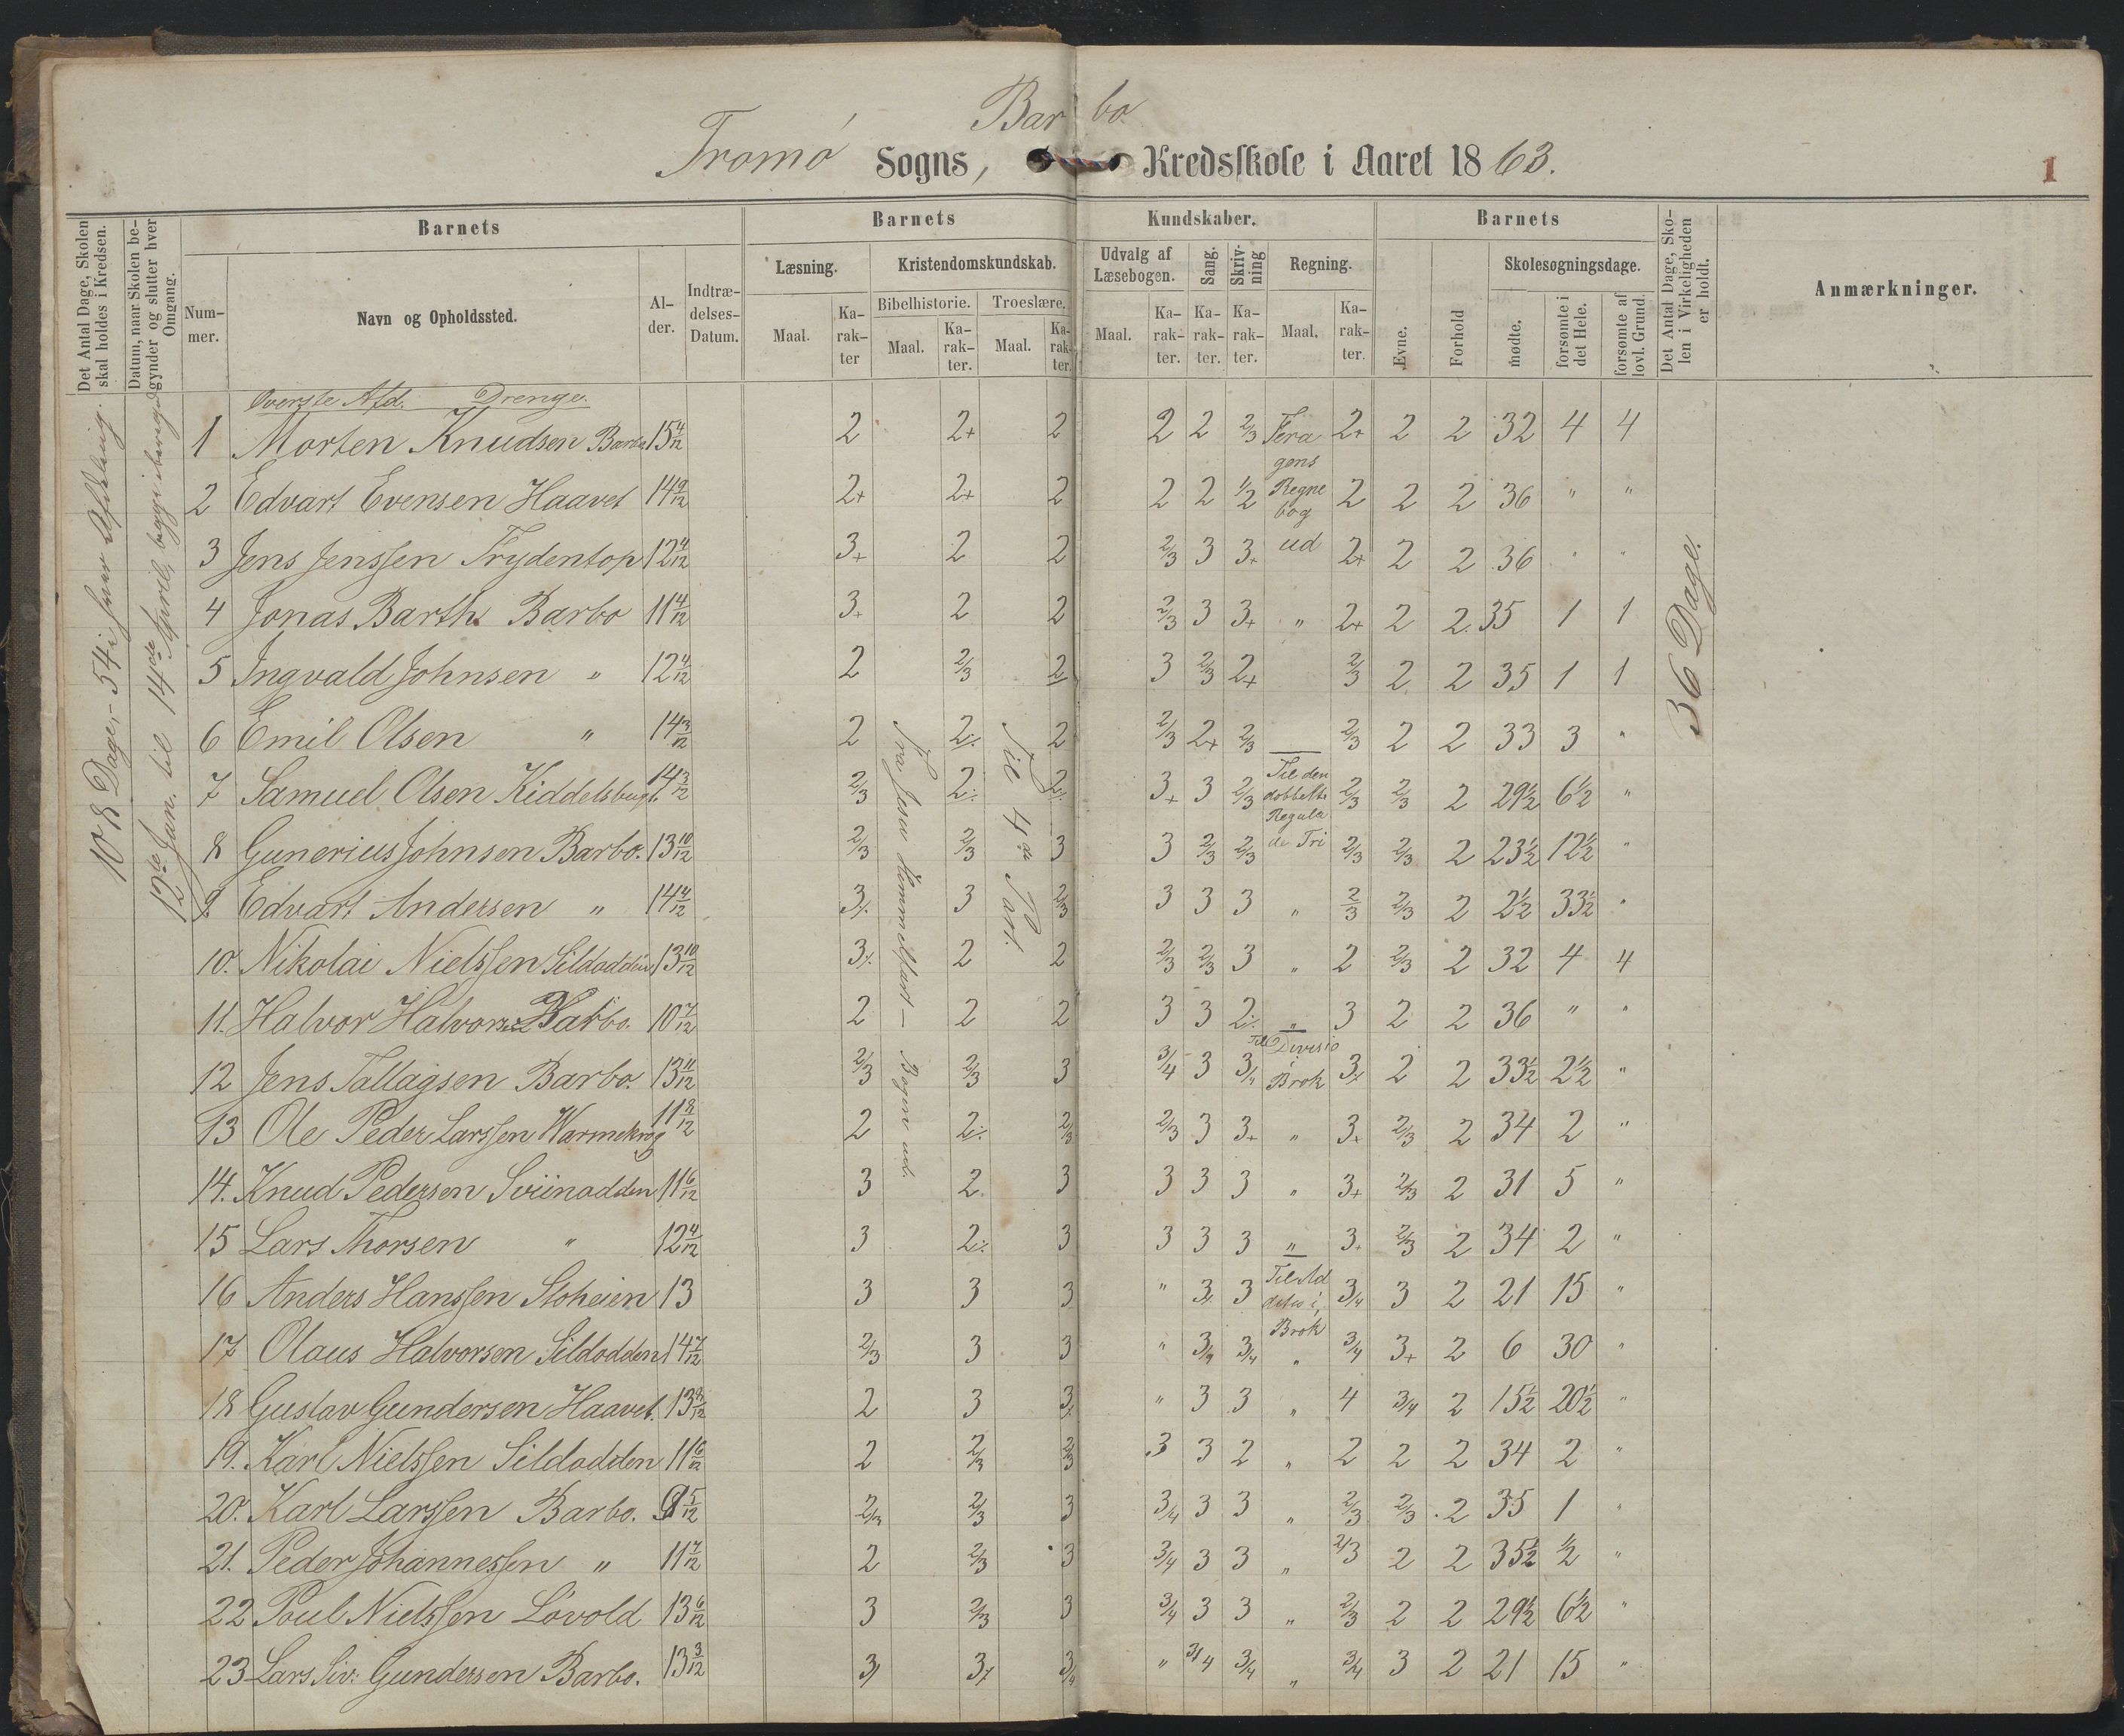 Barbo
Tromø Sogns, Kredsskole i Aaret 1863.
1
Det Antal Dage, Skolen skal holdes i Kredsen.
Datum, naar Skolen begynder og slutter hver Omgang.
Barnets
Barnets Kundskaber.
Barnets
Det Antal Dage, Skolen i Virkeligheden er holdt.
Anmærkninger.
Nummer.
Navn og Opholdssted.
Alder.
Indtrædelses-Datum.
Læsning.
Kristendomskundskab.
Udvalg af Læsebogen.
Sang.
Skrivning
Regning.
Evne.
Forhold
Skolesøgningsdage.
Bibelhistorie.
Troeslære.
Maal.
Karakter
Maal.
Karakter.
Maal.
Karakter.
Maal.
Karakter.
Karakter.
Karakter.
Maal.
Karakter.
mødte.
forsømte i det Hele.
forsømte af lovl. Grund.
108 Dage, 54 i hver Afdeling.
12te Jan. til 14de April, begge iberegn.
Fra Jesu Himmelfart – Bogen ud.
Til 4de Part.
36 Dage.
Øverste Afd. Drenge.
1 Morten Knudsen Barbo 15 4/12 2 2+ 2 2 2 2/3 Feragens Regnebog ud 2+ 2 2 32 4 4
2 Edvart Evensen Haavet 14 9/12 2+ 2+ 2 2 2 1/2 2 2 2 36 " "
3 Jens Jenssen Frydentop 12 4/12 3+ 2 2 2/3 3 3+ 2+ 2 2 36 " "
4 Jonas Barth Barbo 11 4/12 3+ 2 2 2/3 3 3+ " 2+ 2 2. 35 1 1
5 Ingvald Johnsen " 12 4/12 2 2/3 2 3 2/3 2+ 2/3 2 2 35 1 1
6 Emil Olsen " 14 3/12 2 2% 2 2/3 2+ 2/3 2/3 2 2 33 3 "
7 Samuel Olsen Kiddelsbugt 14 3/12 2/3 2% 2% 3+ 3 2/3 Til den dobbelte Regula de Tri 2/3 2/3 2 29½ 6½ "
8 Gunerius Johnsen Barbo. 13 10/12 2/3 2/3 3 3 2/3 2/3 2/3 2/3 2 23½ 12½ "
9. Edvart Andersen " 14 4/12 3% 3 2/3 3 3 3 " 2/3 2/3 2 2½ 33½ "
10. Nikolai Nielssen Sildodden 13 10/12 3% 2 2 2/3 2/3 3 " 2 2/3 2 32 4 4
11. Halvor Halvorsen Barbo. 10 7/12 2 2 2 3 3 2% " 3 2 2 36 " "
12 Jens Tallagsen Barbo. 13 11/12 2/3 2/3 3 3/4 3 3/4 Til Divisio i Brok 3% 2 2 33½ 2½ "
13 Ole Peder Larssen Warmekrog 11 8/12 2 2% 2/3 2/3 3 3+ " 3+ 2/3 2 34 2 "
14. Knud Pedersen Sviinodden 11 6/12 3 2 3 3 3 3 " 3+ 2/3 2 31 5 "
15 Lars Thorsen " 12 4/12 3 2% 3 3 3 3 " 3+ 2/3 2 34 2 "
16 Anders Hanssen Stoheien 13 3 3 3 " 3% 3 Til Addition i Brok 3/4 3 2 21 15 "
17 Olaus Halvorsen Sildodden 14 7/12 2/3 3 3 " 3/4 3/4 " 3/4 3+ 2 6 30 "
18 Gustav Gundersen Haavet. 13 3/12 2 3 3% " 3 3 " 4 3/4 2 15½ 20½ "
19. Karl Nielssen Sildodden 11 6/12 2 2/3 2/3 3 3 2 " 2 2 2 34 2 "
20. Karl Larssen Barbo. 9 5/12 2/3 2/3 3 3/4 3 3 " 2/3 2/3 2 35 1 "
21. Peder Johannessen " 11 7/12 2 2/3 3 3/4 3 3 " 2/3 2 2 35½ ½ "
22 Poul Nielssen Løvold 13 6/12 3 2/3 3 3/4 3 3 " 2/3 2 2 29½ 6½ "
23 Lars Siv: Gundersen Barbo. 13 3/12 3/ 3% 3/4 " 3/4 3/4 " 3/4 3 2 21 15 "